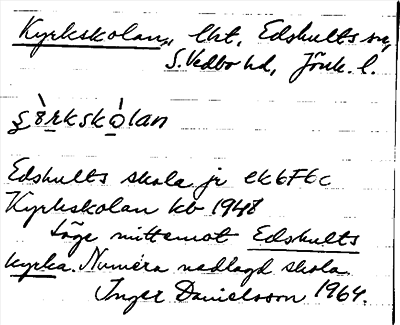 Kyrkskolan, lht, Edshults sn,
S. Vedbo hd, Jönk. l.
Edshults skola jr ek 6F6c
Kyrkskolan kb 1948
Läge mittemot Edshults
kyrka. Numera nedlagd skola
Inger Danielsson 1964.